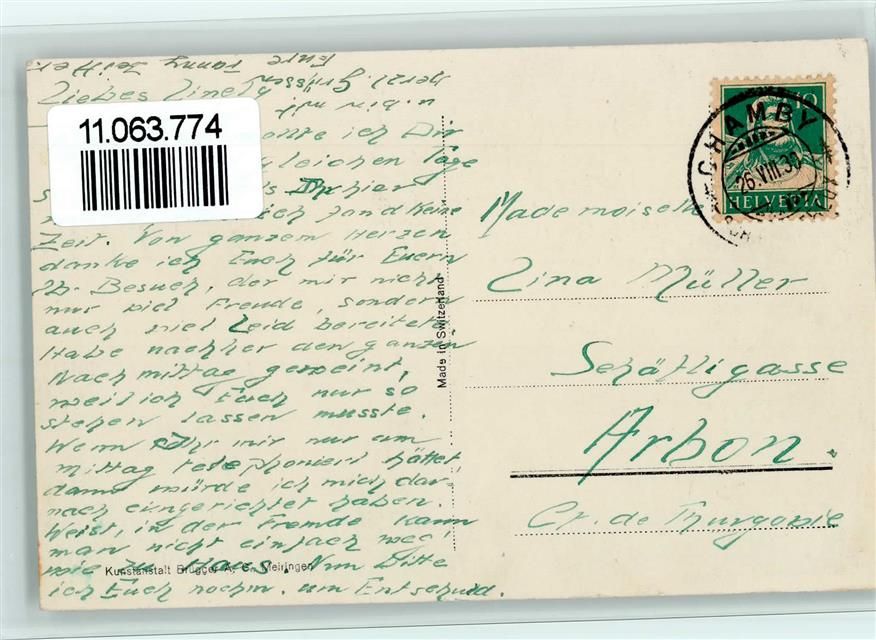 Liebes Lineli
11.063.774
konnte ich Dir
gleichen Tage
Ihr hier
ich fand keine
Zeit. Von ganzem Herzen
danke ich Euch für Euern
lb. Besuch, der mir nicht
nur viel Freude, sondern
auch viel Leid bereitete.
Habe nachher den ganzen
Nachmittag geweint,
weil ich Euch nur so
stehen lassen musste.
Wenn Ihr mir nur am
Mittag telephoniert hättet
dann würde ich mich dar-
nach eingerichtet haben.
Weist, in der Fremde kann
man nicht einfach weg,
wie zu Haus. Nun bitte
ich Euch nochm. um Entschuld.
u. bin mit
herzl. Grüssen
Eure Fanny
Kunstanstalt Brügger A. G. Meiringen
Made in Switzerland
CHAMBY
26.VIII.30
10
HELVETIA
Mademoiselle
Lina Müller
Schäfligasse
Arbon.
Ct. de Thurgovie